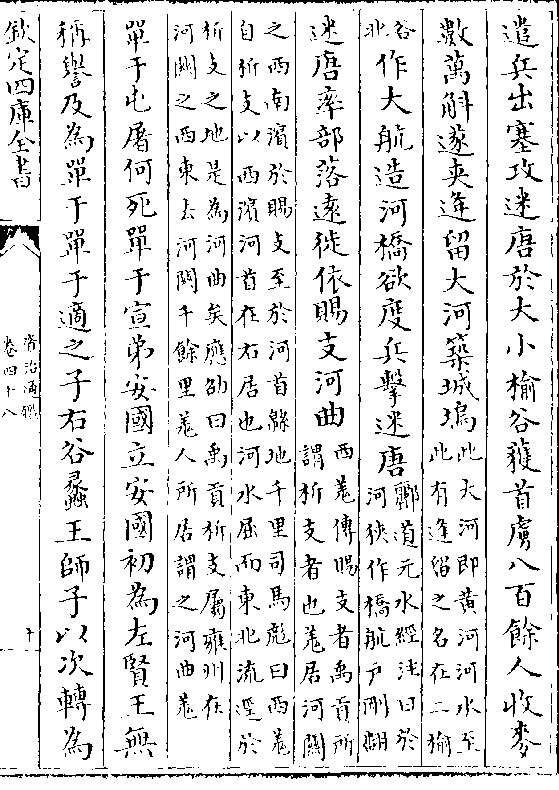 遣兵出塞攻迷唐於大小榆谷獲首虜八百餘人收麥
數萬斛遂夾逢留大河築城塢此大河即黄河河水至
此有逢留之名在二榆
谷
北作大航造河橋欲度兵擊迷唐酈道元水經注曰於
河狹作橋航戶剛翻
迷唐率部落遠徙依賜支河曲西羌傳賜支者禹貢所
謂析支者也羌居河關
之西南濱於賜支至於河首緜地千里司馬彪曰西羌
自析支以西濱河首在右居也河水屈而東北流逕於
析支之地是為河曲矣應劭曰禹貢析支屬雍州在
河關之西東去河關千餘里羌人所居謂之河曲羌
單于屯屠何死單于宣弟安國立安國初為左賢王無
稱譽及為單于單于適之子右谷蠡王師子以次轉為
欽定四庫全書
資治通鑑
卷四十八
十